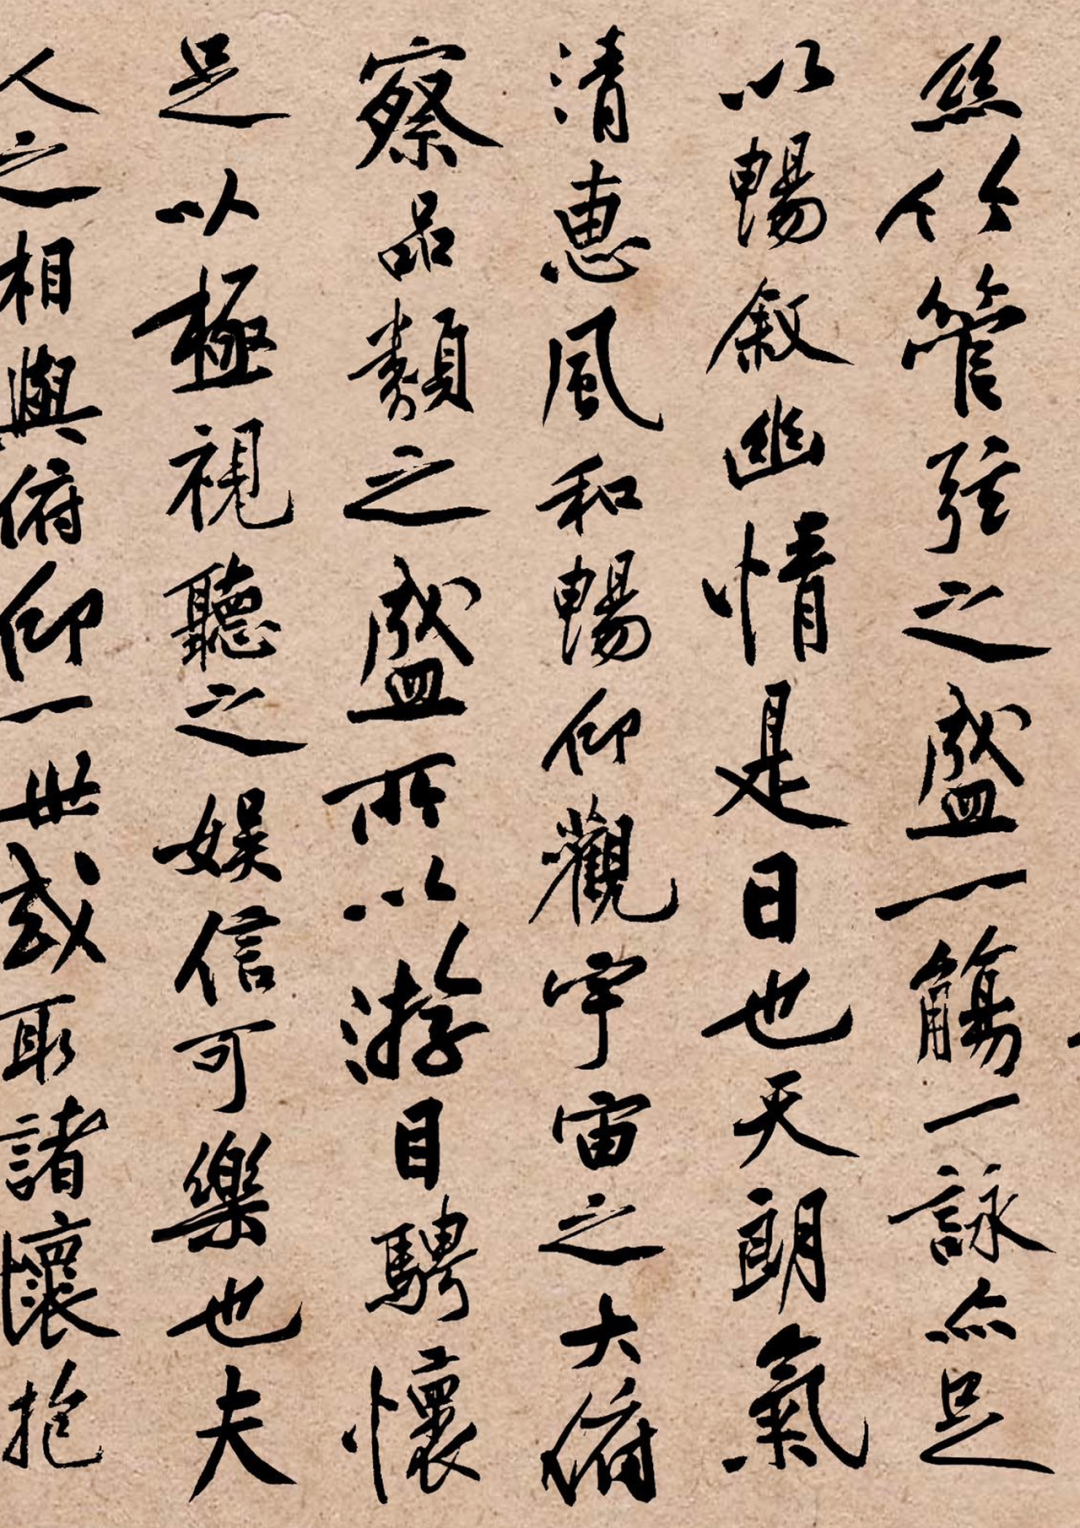 絲竹管弦之盛一觴一詠亦足
以暢敘幽情是日也天朗氣
清惠風和暢仰觀宇宙之大俯
察品類之盛所以遊目騁懷
足以極視聽之娛信可樂也夫
人之相與俯仰一世或取諸懷抱